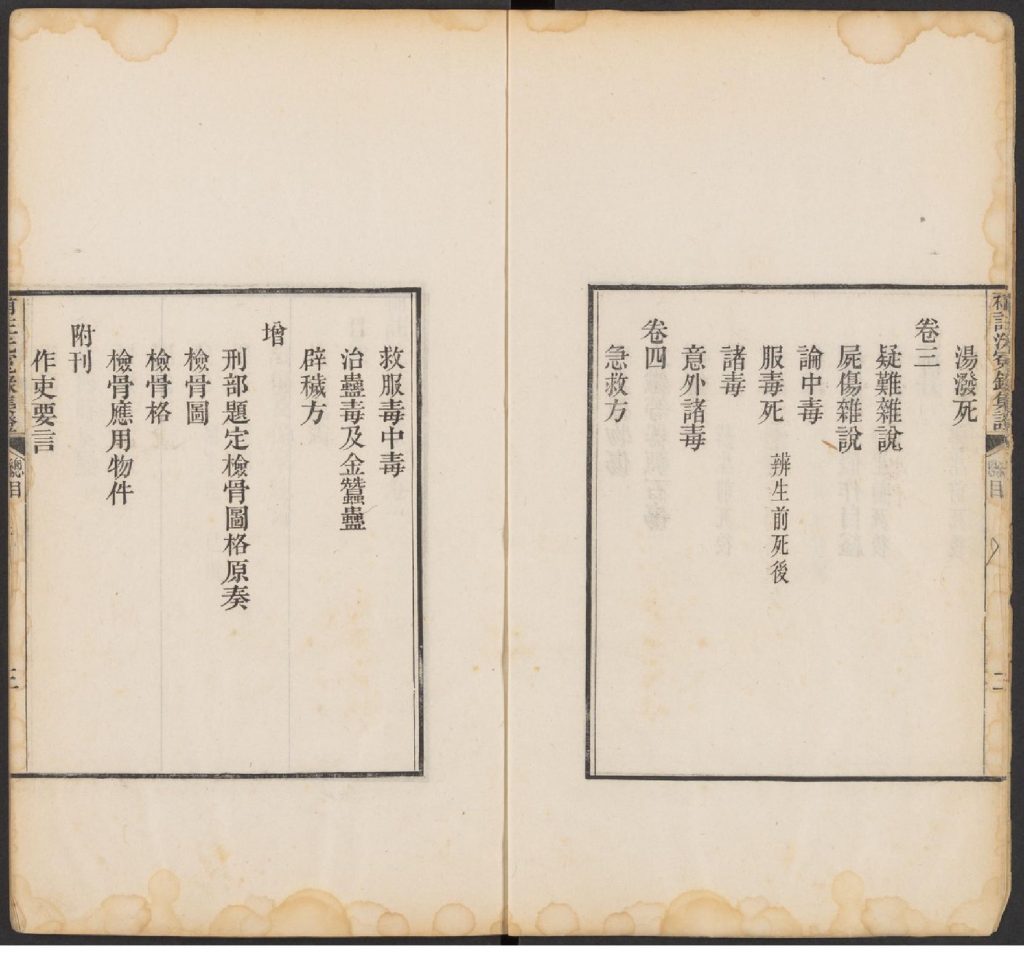 補註洗冤錄集證
總目
二
湯潑死
卷三
疑難雜說
屍傷雜說
論中毒
服毒死 辨生前死後
諸毒
意外諸毒
卷四
急救方
救服毒中毒
治蠱毒及金蠶蠱
辟穢方
增
刑部題定檢骨圖格原奏
檢骨圖
檢骨格
檢骨應用物件
附刊
作吏要言
總目
三